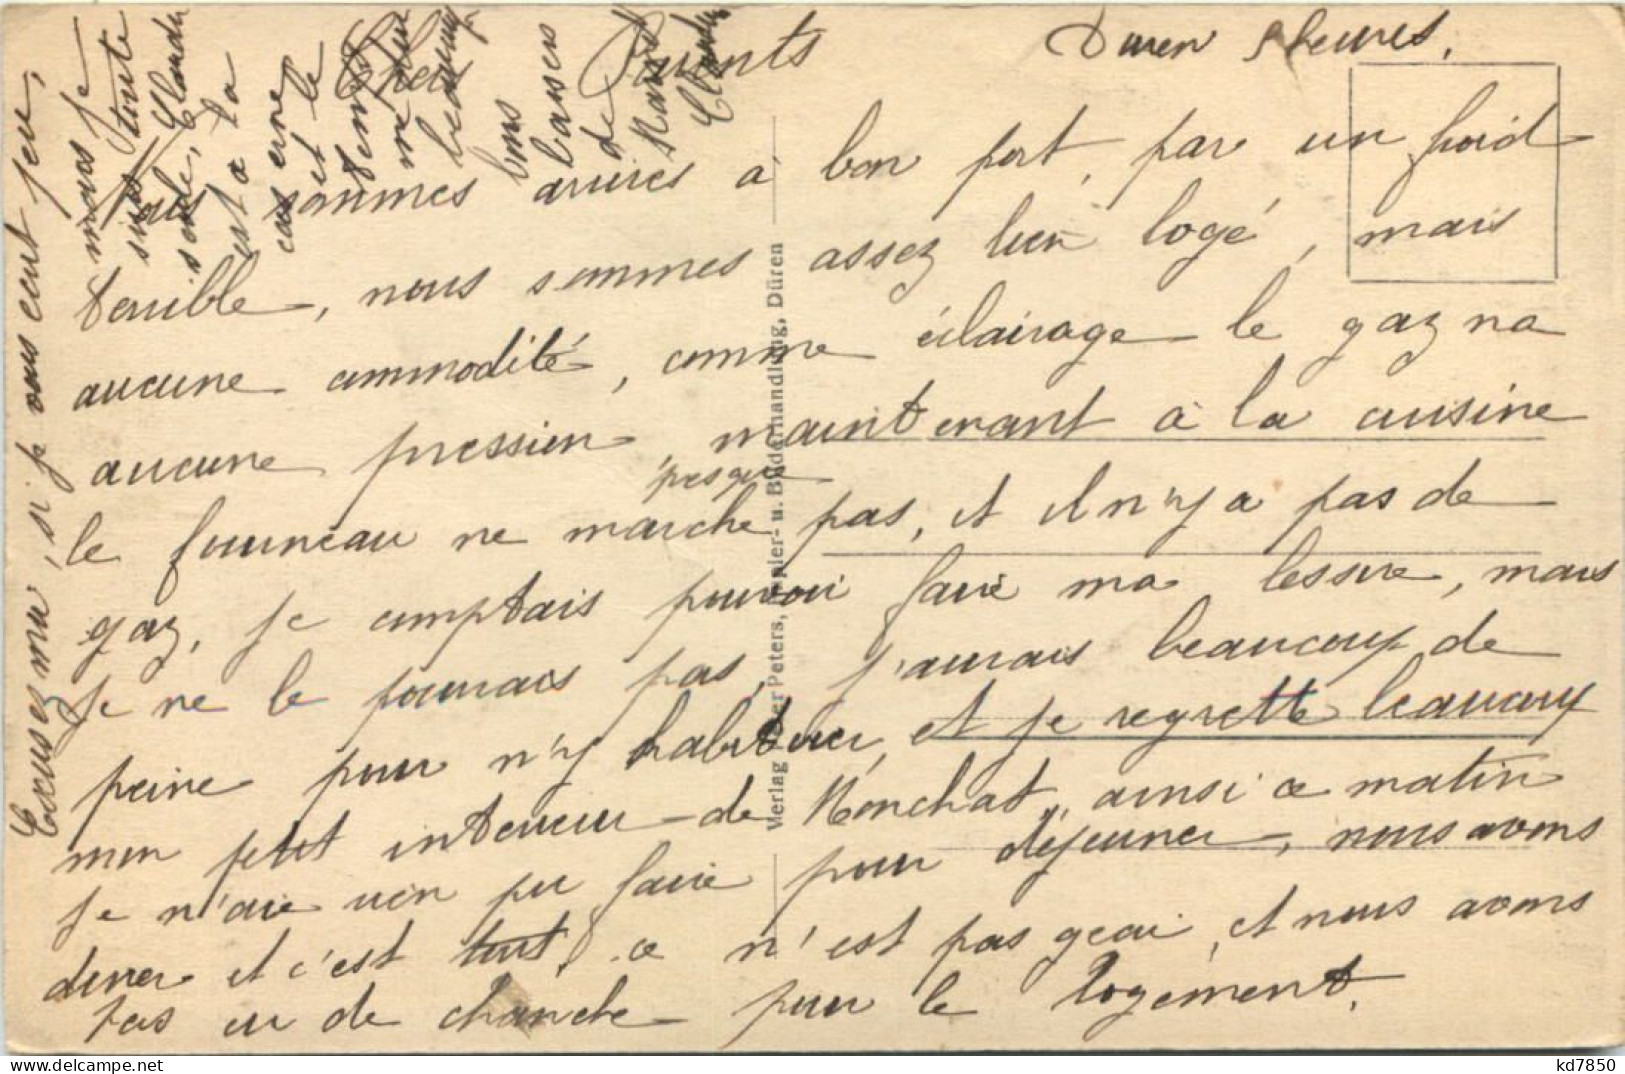 Duren 5 heures.
Chers Parents
Nous sommes arrivés à bon port, par un froid
terrible, nous sommes assez bien logé, mais
aucune commodité, comme éclairage le gaz na
aucune pression, maintenant à la cuisine
le fourneau ne marche presque pas, et il n'y a pas de
gaz, je comptais pouvoir faire ma lessive, mais
je ne le pourrais pas, j'aurais beaucoup de
peine pour n'y habituer, et je regrette beaucoup
mon petit interieur de Monchat, ainsi ce matin
je n'aie rien pu faire pour déjeuner, nous avons
diner et c'est tout, ce n'est pas geai, et nous avons
pas eu de chanche pour le logement.
Excusez moi, si je vous ecrit peu,
mais je
suis toute
seule, Claude
est a la
caserne
et le
temps
me dure
beaucoup
bons
baisers
de
Claude
Verlag Peter Peters, Papier- u. Bilderhandlung, Düren
kd7850
delcampe.net